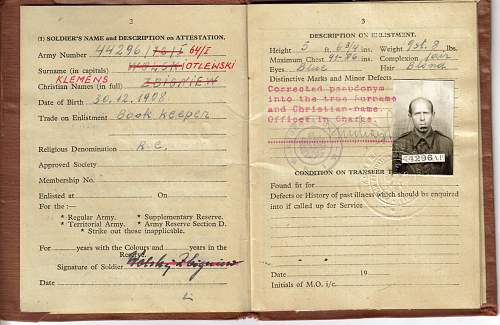 2
(1) SOLDIER'S NAME and DESCRIPTION on ATTESTATION.
Army Number 44296/76/I 64/I
Surname (in capitals) WOLSKI OTLEWSKI
KLEMENS
Christian Names (in full) ZBIGNIEW
Date of Birth 30.12.1908
Trade on Enlistment Book keeper
Religious Denomination R.C.
Approved Society
Membership No.
Enlisted at On
For the :—
* Regular Army. * Supplementary Reserve.
* Territorial Army. * Army Reserve Section D.
* Strike out those inapplicable.
For years with the Colours and years in the
Reserve.
Signature of Soldier Wolski Zbigniew
Date
3
DESCRIPTION ON ENLISTMENT.
Height 5 ft. 6 3/4 ins. Weight 9st. 8 lbs.
Maximum Chest ins. Complexion fair
Eyes Blue Hair Blond
Distinctive Marks and Minor Defects
Corrected pseudonym
into the true Surname
and Christian-name.
Officer in Charge.
44296
CONDITION ON TRANSFER T
Found fit for
Defects or History of past illness which should be enquired
into if called up for Service
Date 19
Initials of M.O. i/c.